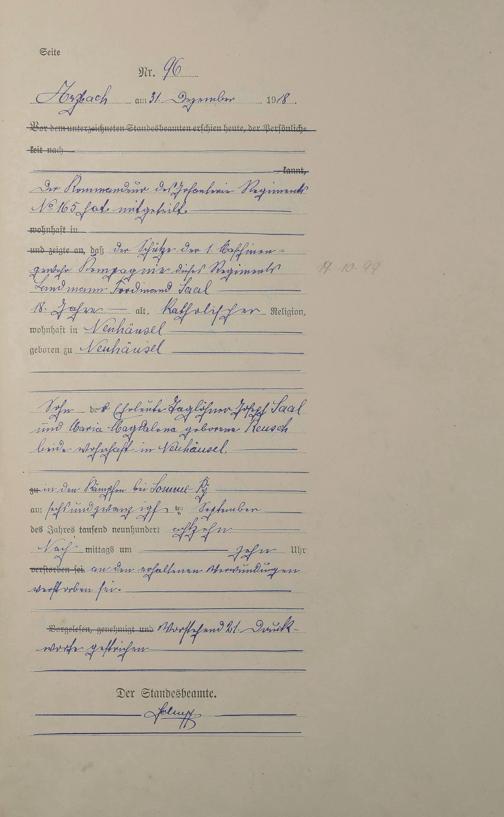 Seite
Nr. 96
Arzbach am 31 Dezember 1918.
Vor dem unterzeichneten Standesbeamten erschien heute, der Persönlich-
keit nach
kannt,
Der Kommandeur des Infanterie Regiments
No 165 hat mitgeteilt
wohnhaft in
und zeigte an, daß der Schütze der 1. Maschinen-
gewehr Kompagnie dieses Regiments
Landmann Ferdinand Saal
18. Jahre alt, Katholischer Religion,
wohnhaft in Neuhäusel
geboren zu Neuhäusel
Sohn der Eheleute Taglöhner Joseph Saal
und Maria Magdalena geborene Reusch
beide wohnhaft in Neuhäusel.
zu in den Kämpfen bei Somme
am sechsundzwanzigsten September
des Jahres tausend neunhundert achtzehn
Nach mittags um zehn Uhr
verstorben sei. an den erhaltenen Verwundungen
verstorben sei.
Vorgelesen, genehmigt und Vorstehend 21. Druck-
worte gestrichen
Der Standesbeamte.